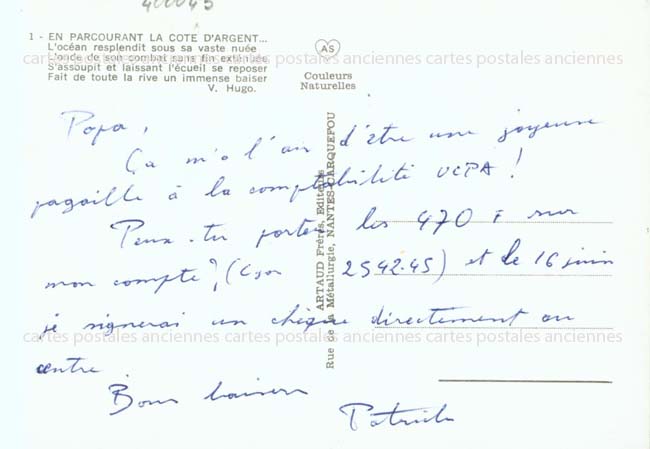 400045
1 - EN PARCOURANT LA COTE D'ARGENT...
L'océan resplendit sous sa vaste nuée
L'onde de son combat sans fin exténuée
S'assoupit et laissant l'écueil se reposer
Fait de toute la rive un immense baiser
V. Hugo.
AS
Couleurs
Naturelles
cartes postales anciennes cartes postales anciennes cartes postales anciennes
Papa,
Ça m'a l'air d'être une joyeuse
pagaille à la comptabilité UCPA !
Peux-tu porter les 470 F sur
mon compte ? (Lyon 2542.45) et le 16 juin
je signerai un chèque directement au
centre
Bons baisers
Patrick
ARTAUD Frères, Editeurs
Rue de la Métallurgie, NANTES-CARQUEFOU
cartes postales anciennes cartes postales anciennes cartes postales anciennes